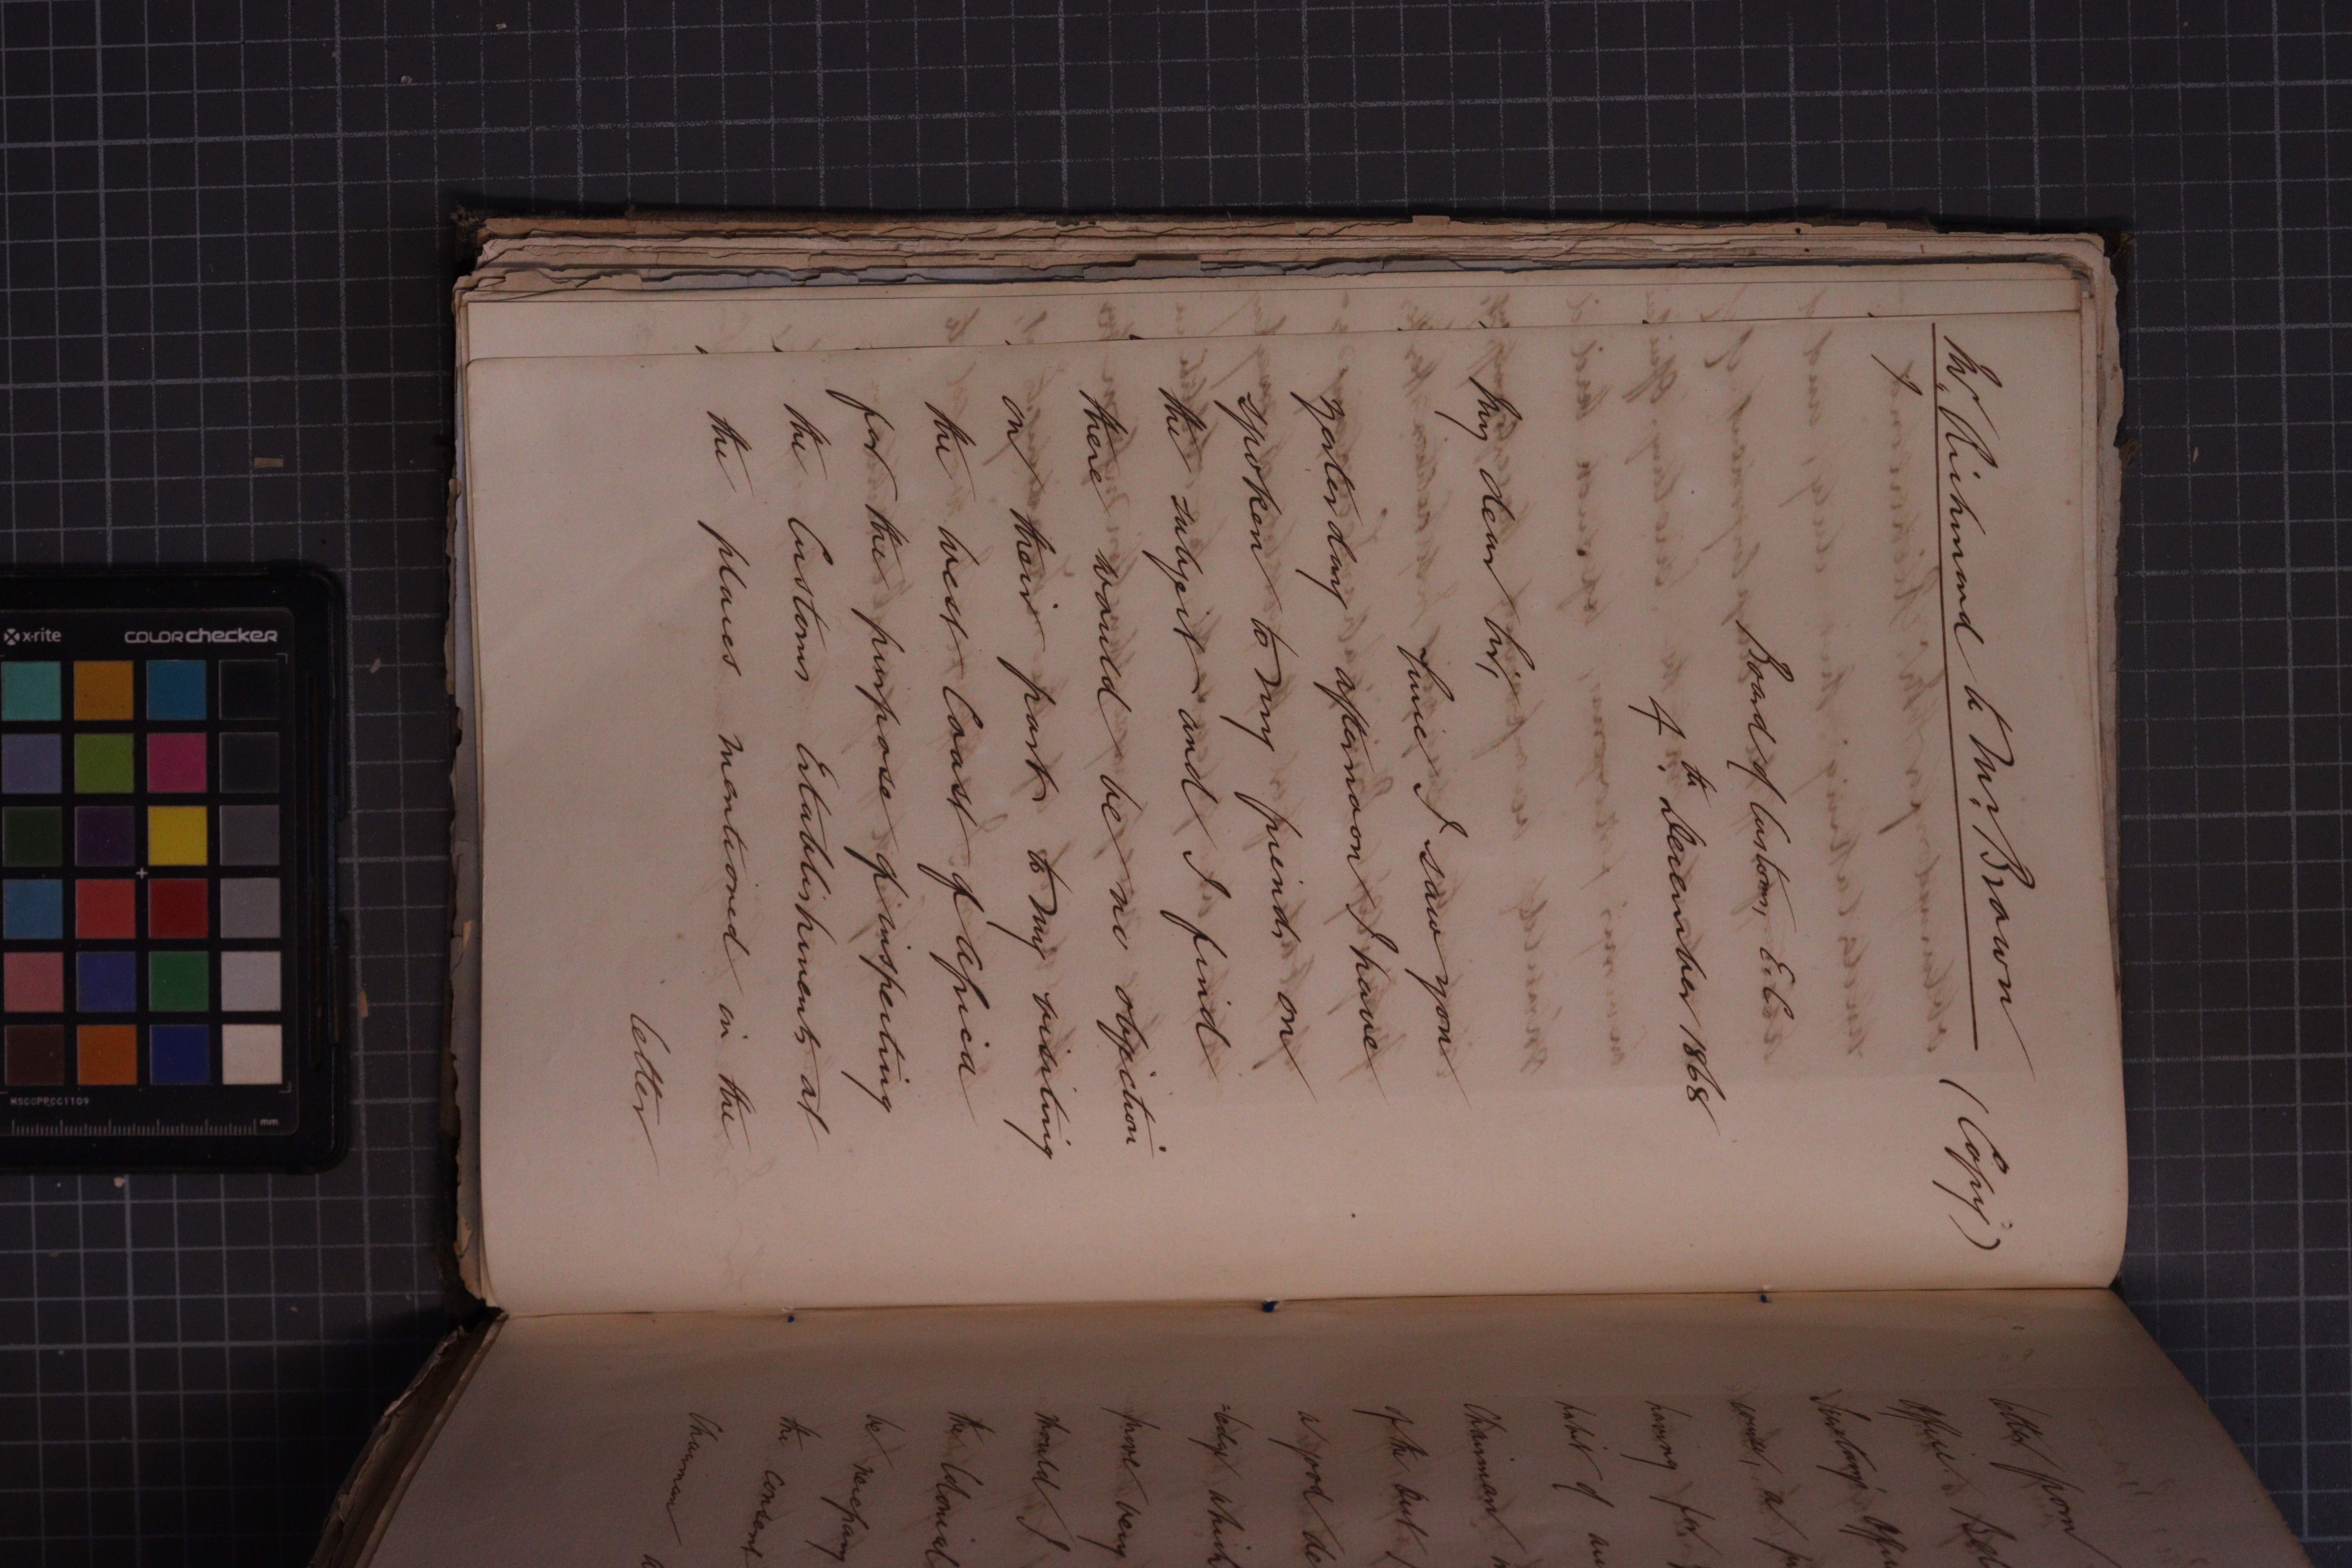 W. Richmond to Mr. Brown (Copy)
Board of Customs, E.C.
4th December 1868
My dear Sir,
Since I saw you
yesterday afternoon I have
spoken to my friends on
the subject and I find
there would be no objection
on their part to my visiting
the West Coast of Africa
for the purpose of inspecting
the Customs Establishments at
the places mentioned in the
letter
letter from
Office
having for
habit of
Chairman
of the but
a good de
=ledge which
have very
should I
the Colonial
be necessary
the consent
Chairman
x-rite
COLORchecker
MSCCPPCC1109
mm